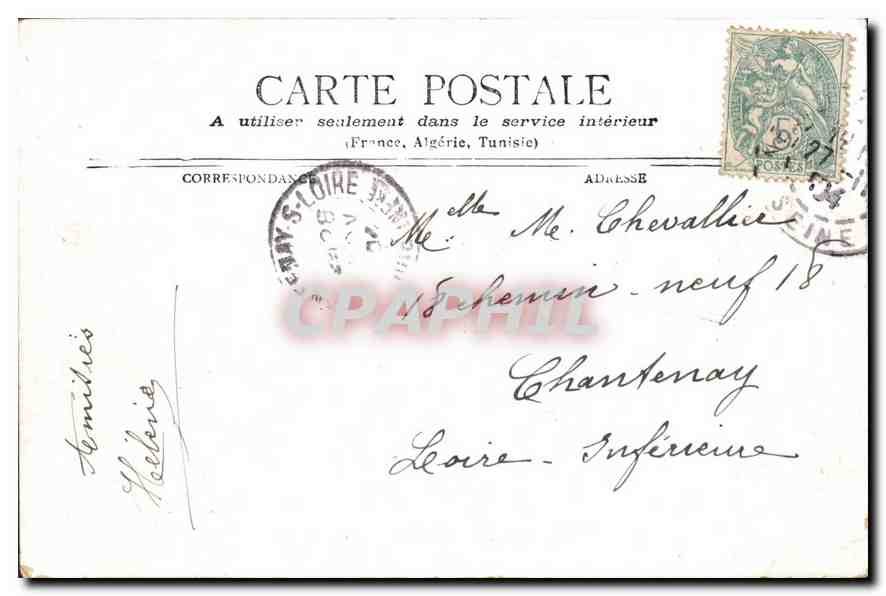 CARTE POSTALE
A utiliser seulement dans le service intérieur
(France, Algérie, Tunisie)
CORRESPONDANCE
ADRESSE
5
POSTES
27
04
SEINE
NAY-S-LOIRE
Melle M. Chevallier
18 chemin-neuf 18
Chantenay
Loire-Inférieure
Amitiés
Hélène
CPAPHIL